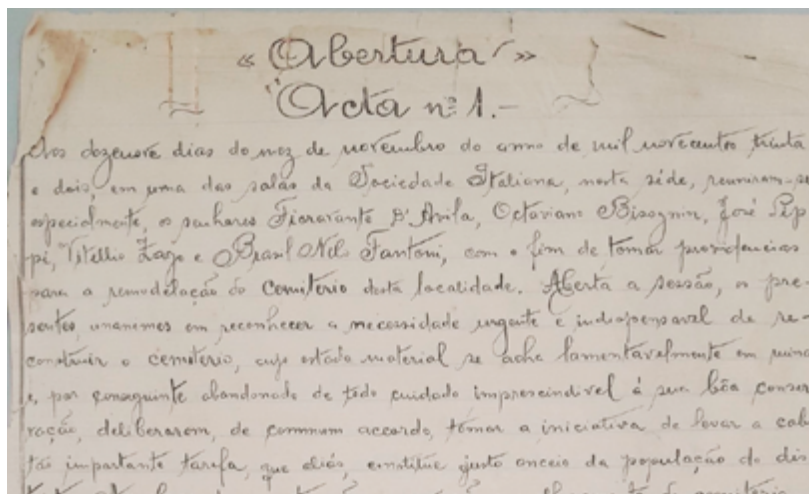 « Abertura »
Acta nº 1.-
Aos dezenove dias do mez de novembro do anno de mil novecentos trinta
e dois, em uma das salas da Sociedade Italiana, nesta séde, reuniram-se
especialmente, os senhores Fioravante D'Avila, Octaviano Bisognin, José Pip-
pi, Vitellio Zago e Brasil Nilo Fantoni, com o fim de tomar providencias
para a remodelação do Cemiterio desta localidade. Aberta a sessão, os pre-
sentes, unanemes em reconhecer a necessidade urgente e indispensavel de re-
construir o cemiterio, cujo estado material se acha lamentavelmente em ruina
e, por conseguinte abandonado de todo cuidado imprescindivel á sua bôa conser-
vação, deliberarem, de commum accordo, tomar a iniciativa de levar a cabo
tão importante tarefa, que aliás, constitue justo anceio da população do dis-